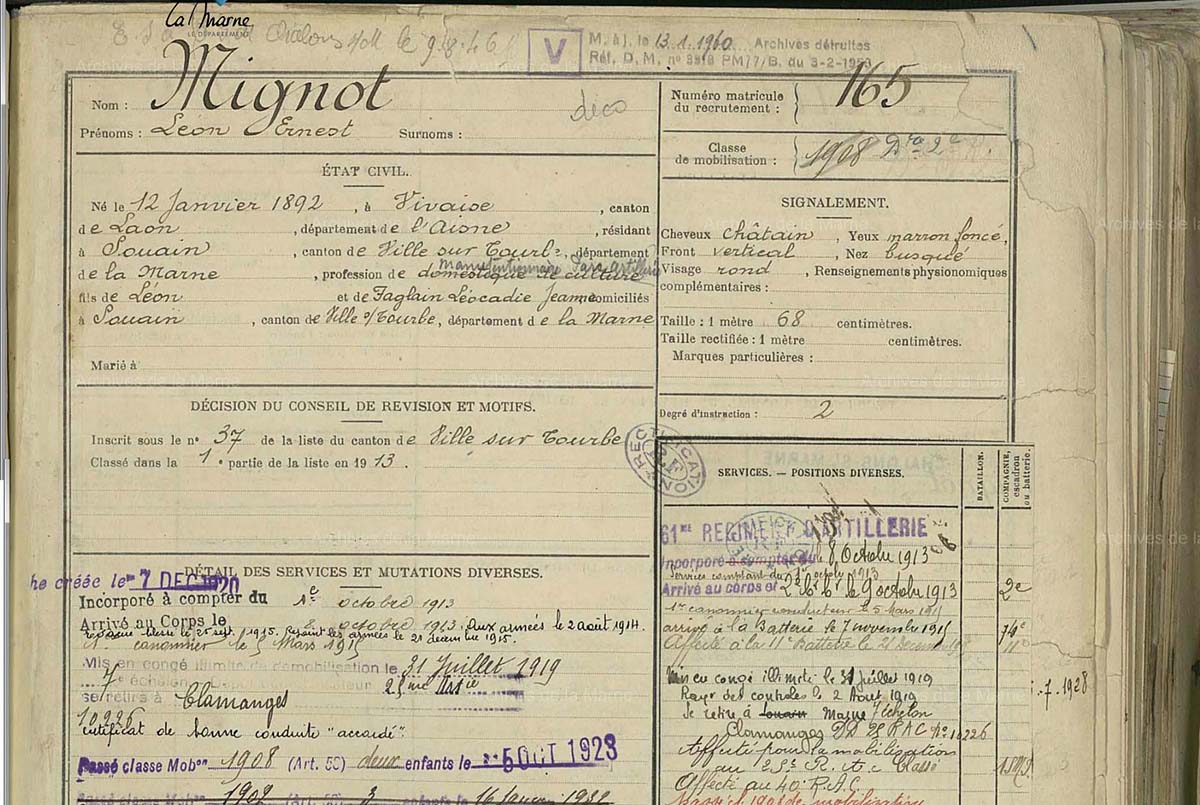 La Marne
LE DÉPARTEMENT
Chalons le 9.8.46
V
M. à j. le 13.1.1960 Archives détruites
Réf. D. M. n° PM/7/B. du 3-2-
Nom : Mignot
déco
Prénoms : Léon Ernest Surnoms :
Numéro matricule
du recrutement : 165
Classe
de mobilisation : 1908
ÉTAT CIVIL.
Né le 12 Janvier 1892, à Vivaise, canton
de Laon, département de l'Aisne, résidant
à Souain, canton de Ville sur Tourbe, département
manutentionnaire
de la Marne, profession de domestique de culture
fils de Léon et de Faglain Léocadie Jeanne domiciliés
à Souain, canton de Ville s/Tourbe, département de la Marne
Marié à
SIGNALEMENT.
Cheveux châtain, Yeux marron foncé,
Front vertical, Nez busqué
Visage rond, Renseignements physionomiques
complémentaires :
Taille : 1 mètre 68 centimètres.
Taille rectifiée : 1 mètre centimètres.
Marques particulières :
Degré d'instruction : 2
DÉCISION DU CONSEIL DE REVISION ET MOTIFS.
Inscrit sous le n° 37 de la liste du canton de Ville sur Tourbe
Classé dans la 1e partie de la liste en 1913.
RECTIFICATION
DÉTAIL DES SERVICES ET MUTATIONS DIVERSES.
he créée le 7 DEC 1920
Incorporé à compter du 1e octobre 1913
Arrivé au Corps le 2 octobre 1913. Aux armées le 2 août 1914.
le 25 sept. 1915. Rejoint les armées le 21 décembre 1915.
canonnier le 5 Mars 1915
Mis en congé illimité de démobilisation le 31 Juillet 1919
7e échelon
se retire à Clamanges
10226
Certificat de bonne conduite "accordé"
Passé classe Mobon 1908 (Art. 58) deux enfants le 5 OCT 1923
Passé classe Mobon 1902 (Art. 58) 3 enfants le 16 Janvier 1932
SERVICES. — POSITIONS DIVERSES.
BATAILLON.
COMPAGNIE,
escadron
ou batterie.
61ME REGIMENT D'ARTILLERIE
Incorporé à compter du 8 Octobre 1913
Services comptant du 1er octobre 1913
Arrivé au corps et 2e C. C. le 9 octobre 1913 2e
1er canonnier conducteur le 5 mars 1915
arrivé à la Batterie le 7 novembre 1915
Affecté à la 11e Batterie le 21 11e
Mis en congé illimité le 31 juillet 1919
Rayé des contrôles le 2 Aout 1919
Se retire à Souain Marne 7 échelon
Clamanges DD 25 RAC No 10226
Affecté pour la mobilisation
au 25e R. A. C. Classé
Affecté au 40e R.A.C.
.7.1928
Passé cl 1908 de mobilisation
Archives de la Marne